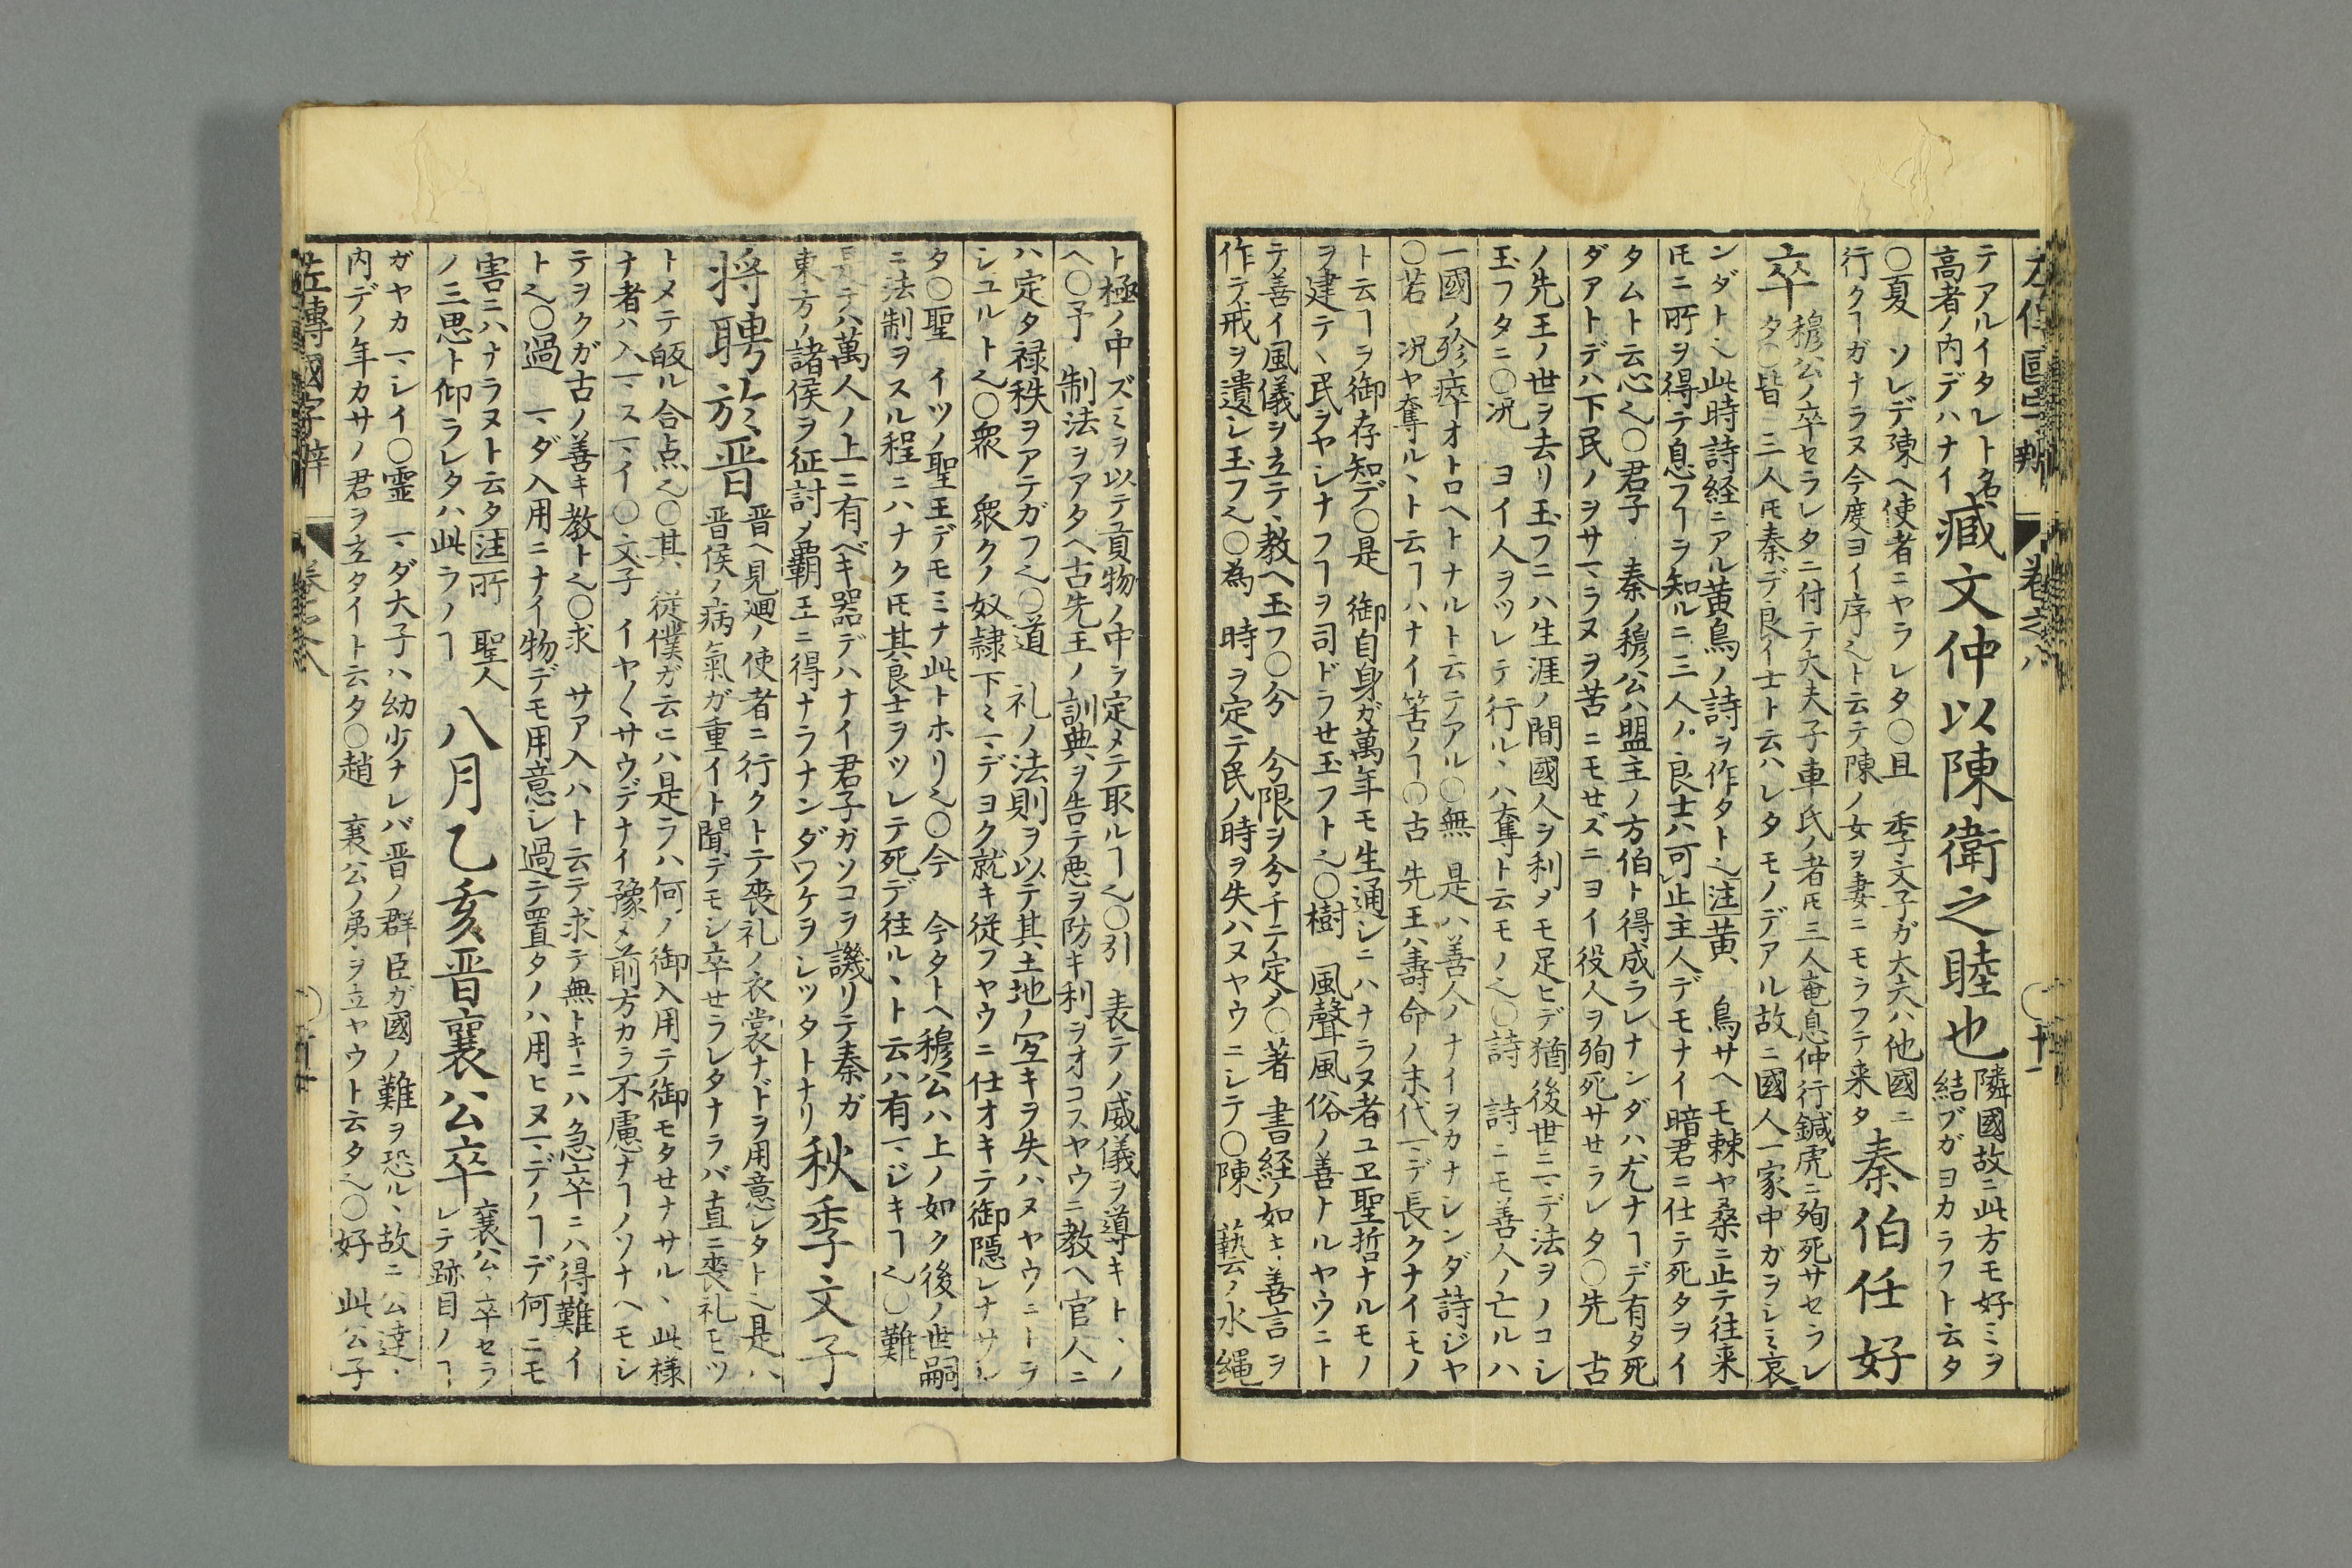 左傳國字辯　巻之八　〇十一
テアルイタレト名
高者ノ内デハナイ
臧文仲以陳衛之睦也
隣國故ニ此方モ好ミヲ
結ブガヨカラフト云タ
〇夏　ソレデ陳ヘ使者ニヤラレタ〇且　季文子ガ大夫ハ他國ニ
行クヿガナラヌ今度ヨイ序ヘト云テ陳ノ女ヲ妻ニモラフテ来タ
秦伯任好
卒
穆公ノ卒セラレタニ付テ大夫子車氏ノ者𪜈三人奄息仲行鍼虎ニ殉死サセラレ
タ〇皆　三人𪜈秦デ良イ士ト云ハレタモノデアル故ニ國人一家中ガヲシミ哀
ンダトヘ此時詩経ニアル黄鳥ノ詩ヲ作タトヘ注黄、　鳥サヘモ棘ヤ桑ニ止テ往来
𪜈ニ所ヲ得テ息フヿヲ知ルニ三人ノ良士ハ可止主人デモナイ暗君ニ仕テ死タヲイ
タムト云心ヘ〇君子　秦ノ穆公ハ盟主ノ方伯ト得成ラレナンダハ尤ナヿデ有タ死
ダアトデハ下民ノヲサマラヌヲ苦ニモせズニヨイ役人ヲ殉死サせラレタ〇先　古
ノ先王ノ世ヲ去リ玉フニハ生涯ノ間國人ヲ利メモ足ヒデ猶後世ニマデ法ヲノコシ
玉フタニ〇况　ヨイ人ヲツレテ行ルヽハ奪ト云モノヘ〇詩　詩ニモ善人ノ亡ルハ
一國ノ殄瘁オトロヘトナルト云テアル〇無　是ハ善人ノナイヲカナシンダ詩ジヤ
〇若　况ヤ奪ルヽト云ヿハナイ筈ノヿ〇古　先王ハ壽命ノ末代マデ長クナイモノ
ト云ヿヲ御存知デ〇是　御自身ガ萬年モ生通シニハナラヌ者ユヱ聖哲ナルモノ
ヲ建テヽ民ヲヤシナフヿヲ司ドラせ玉フトヘ〇樹　風聲風俗ノ善トナルヤウニト
テ善イ風儀ヲ立テヽ教ヘ玉フ〇分　分限ヲ分チテ定メ〇著　書経ノ如キ善言ヲ
作テ戒ヲ遺シ玉フヘ〇為　時ヲ定テ民ノ時ヲ失ハヌヤウニシテ〇陳　藝ノ水縄
ト極ノ中ズミヲ以テ貢物ノ中ラ定メテ取ルヿヘ〇引　表テノ威儀ヲ導キトヽノ
ヘ〇予　制法ヲアタヘ古先王ノ訓典ヲ告テ悪ヲ防キ利ヲオコスヤウニ教ヘ官人ニ
ハ定タ禄秩ヲアテガフヘ〇道　礼ノ法則ヲ以テ其土地ノ宜キヲ失ハヌヤウニトラ
シユルトヘ〇衆　衆クノ奴隷下々マデヨク就キ従フヤウニ仕オキテ御隠レナサレ
タ〇聖　イツノ聖王デモミナ此トホリヘ〇今　今タトヘ穆公ハ上ノ如ク後ノ世嗣
ニ法制ヲスル程ニハナク𪜈其良士ヲツレテ死デ往ルヽト云ハ有マジキヿヘ〇難
是テハ萬人ノ上ニ有ベキ器デハナイ君子ガソコヲ譏リテ秦ガ
東方ノ諸侯ヲ征討メ覇王ニ得ナラナンダワケヲシツタトナリ
秋季文子
将聘於晋
晋ヘ見廻ノ使者ニ行クトテ喪礼ノ衣裳ナドヲ用意レタトヘ是ハ
晋侯ノ病氣ガ重イト聞デモシ卒せラレタナラバ直ニ喪礼モツ
トメテ皈ル合点ヘ〇其、　従僕ガ云ニハ是ラハ何ノ御入用テ御モタせナサルヽ此様
ナ者ハ入マスマイ〇文子　イヤ〱サウデナイ豫メ前方カラ不慮ナヿノソナヘモシ
テヲクガ古ノ善キ教トヘ〇求　サア入ハト云テ求テ無トキニハ急卒ニハ得難イ
トヘ〇過　マダ入用ニナイ物デモ用意シ過テ置タノハ用ヒヌマデノヿデ何ニモ
害ニハナラヌト云タ注所　聖人
ノ三思ト仰ラレタハ此ラノヿ
八月乙亥晋襄公卒
襄公卒セラ
レテ跡目ノヿ
ガヤカマシイ〇霊　マダ大子ハ幼少ナレバ晋ノ群臣ガ國ノ難ヲ恐ルヽ故ニ公達ヽ
内デノ年カサノ君ヲ立タイト云タ〇趙　襄公ノ弟ヲ立ヤウト云タヘ〇好　此公子
左傳國字辯　巻之八　〇十一